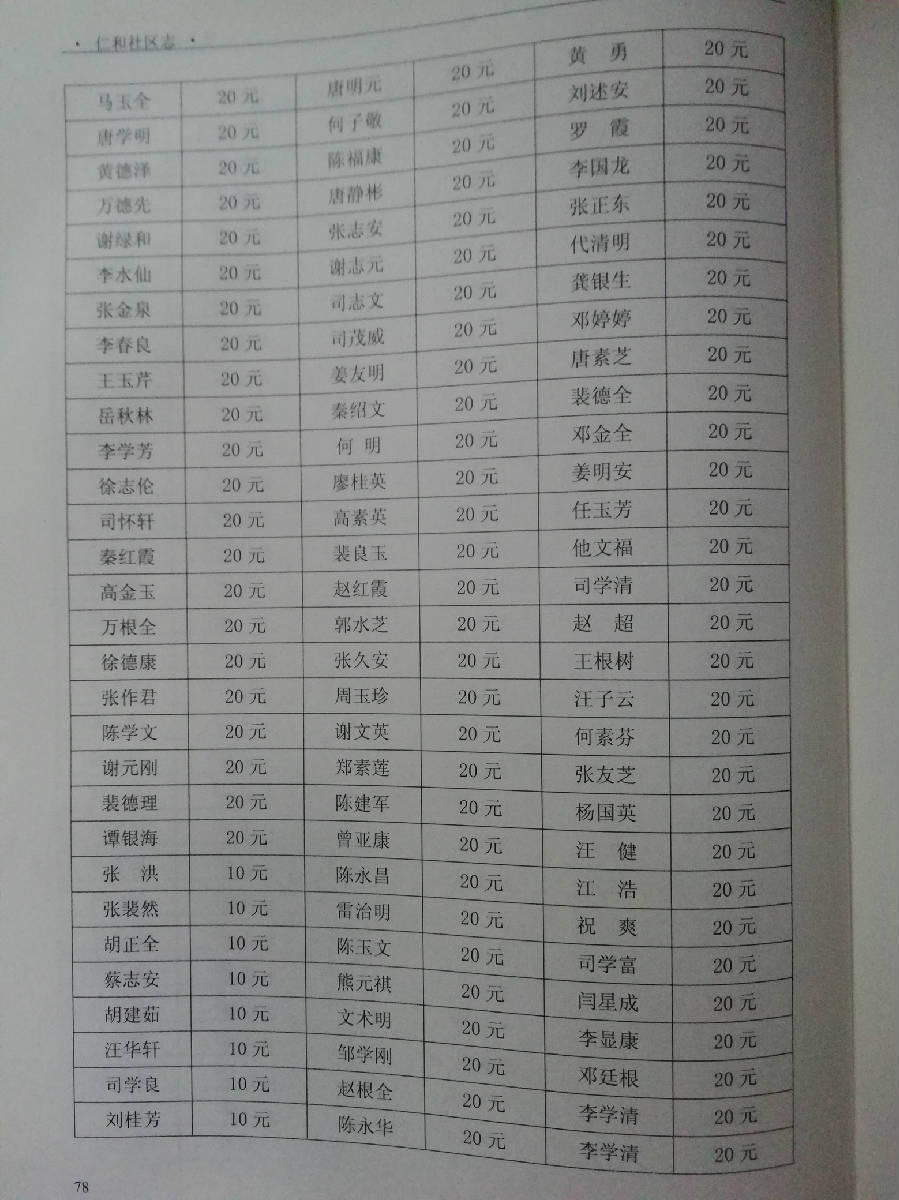 · 仁和社区志 ·
马玉全 20 元 唐明元 20 元 黄 勇 20 元
唐学明 20 元 何子敬 20 元 刘述安 20 元
黄德泽 20 元 陈福康 20 元 罗 霞 20 元
万德先 20 元 唐静彬 20 元 李国龙 20 元
谢绿和 20 元 张志安 20 元 张正东 20 元
李水仙 20 元 谢志元 20 元 代清明 20 元
张金泉 20 元 司志文 20 元 龚银生 20 元
李春良 20 元 司茂威 20 元 邓婷婷 20 元
王玉芹 20 元 姜友明 20 元 唐素芝 20 元
岳秋林 20 元 秦绍文 20 元 裴德全 20 元
李学芳 20 元 何 明 20 元 邓金全 20 元
徐志伦 20 元 廖桂英 20 元 姜明安 20 元
司怀轩 20 元 高素英 20 元 任玉芳 20 元
秦红霞 20 元 裴良玉 20 元 他文福 20 元
高金玉 20 元 赵红霞 20 元 司学清 20 元
万根全 20 元 郭水芝 20 元 赵 超 20 元
徐德康 20 元 张久安 20 元 王根树 20 元
张作君 20 元 周玉珍 20 元 汪子云 20 元
陈学文 20 元 谢文英 20 元 何素芬 20 元
谢元刚 20 元 郑素莲 20 元 张友芝 20 元
裴德理 20 元 陈建军 20 元 杨国英 20 元
谭银海 20 元 曾亚康 20 元 汪 健 20 元
张 洪 10 元 陈永昌 20 元 江 浩 20 元
张裴然 10 元 雷治明 20 元 祝 爽 20 元
胡正全 10 元 陈玉文 20 元 司学富 20 元
蔡志安 10 元 熊元祺 20 元 闫星成 20 元
胡建茹 10 元 文术明 20 元 李显康 20 元
汪华轩 10 元 邹学刚 20 元 邓廷根 20 元
司学良 10 元 赵根全 20 元 李学清 20 元
刘桂芳 10 元 陈永华 20 元 李学清 20 元
78